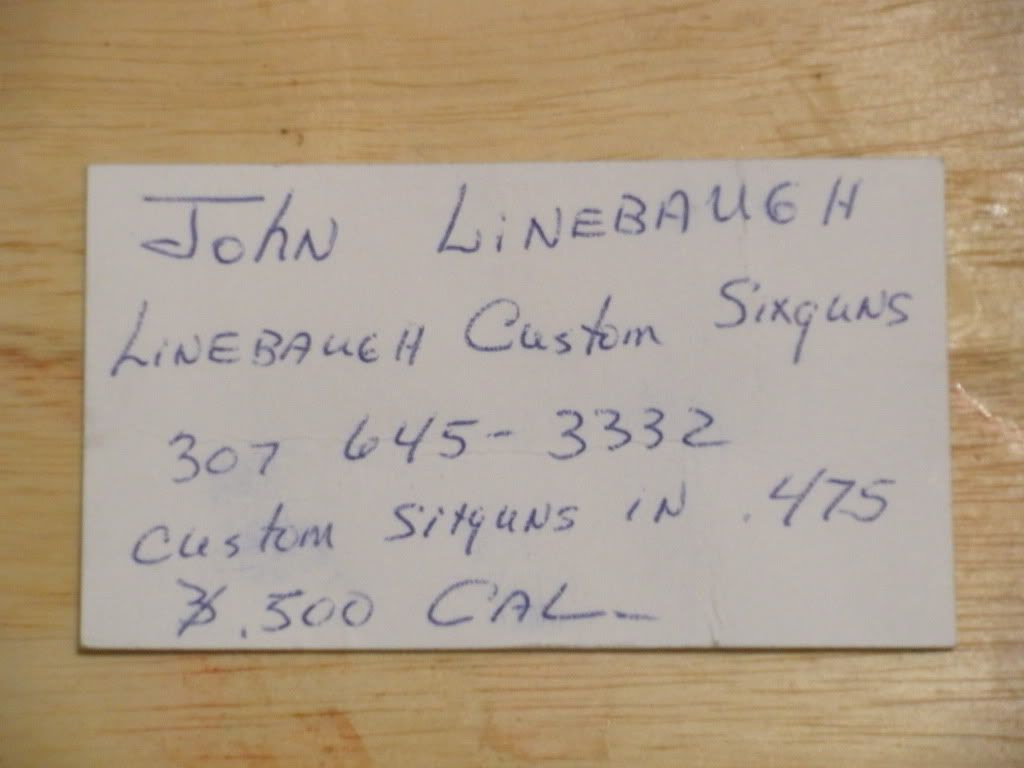 John LiNEBAUGH
LiNEBAUGH Custom Sixguns
307 645-3332
Custom Sixguns iN .475
& .500 CAL